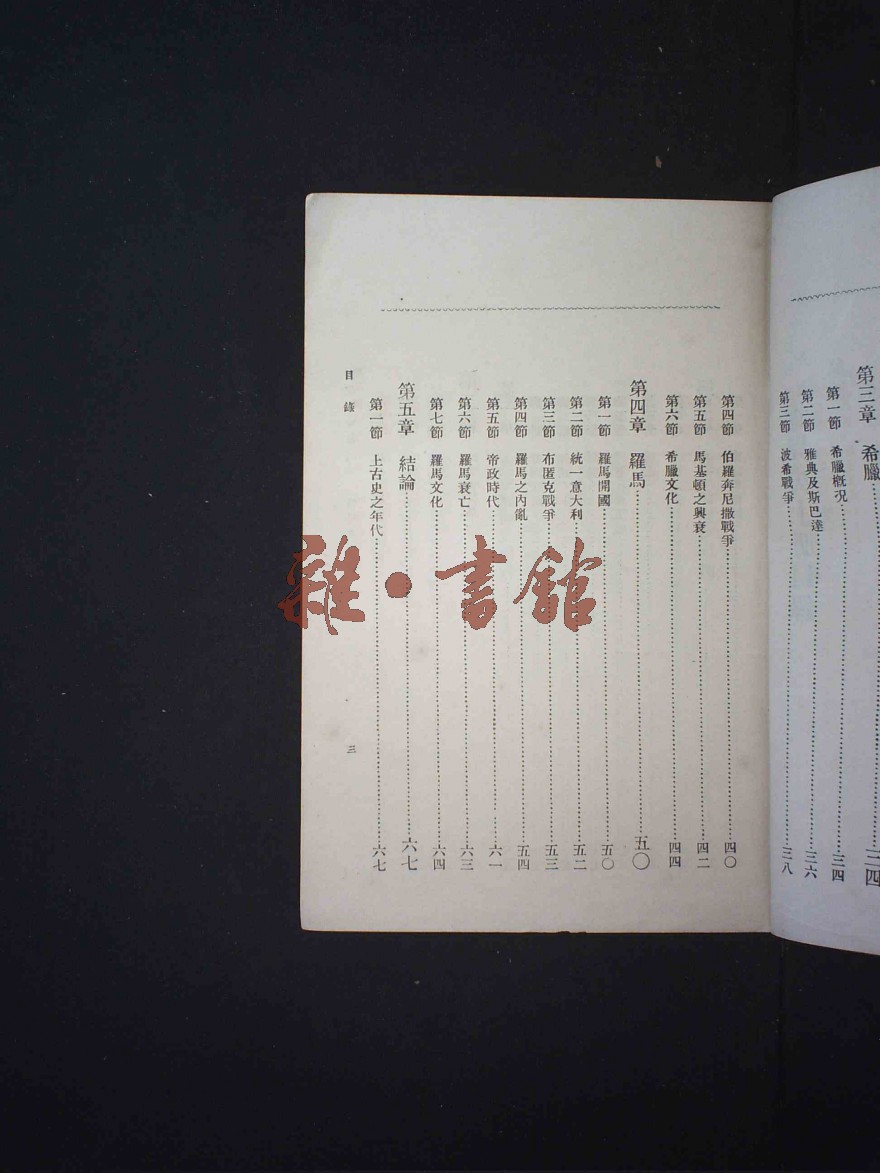 第三章 希臘……三四
第一節 希臘概况……三四
第二節 雅典及斯巴達……三六
第三節 波希戰爭……三八
第四節 伯羅奔尼撒戰爭……四〇
第五節 馬基頓之興衰……四二
第六節 希臘文化……四四
第四章 羅馬……五〇
第一節 羅馬開國……五〇
第二節 統一意大利……五二
第三節 布匿克戰爭……五三
第四節 羅馬之內亂……五四
第五節 帝政時代……六一
第六節 羅馬衰亡……六三
第七節 羅馬文化……六四
第五章 結論……六七
第一節 上古史之年代……六七
目錄 三
雜·書館